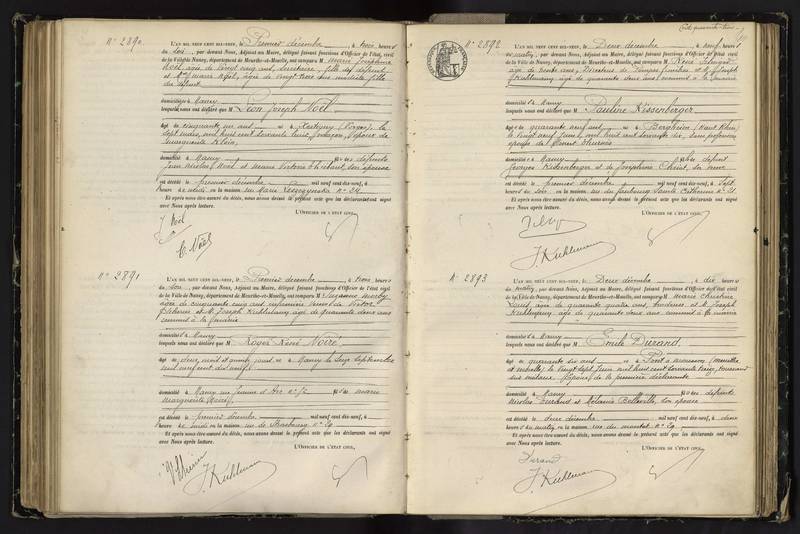 N° 2890
L'AN MIL NEUF CENT DIX-NEUF, le Premier décembre, à trois heures
du soir, par devant Nous, Adjoint au Maire, délégué faisant fonctions d'Officier de l'état civil
de la Ville de Nancy, département de Meurthe-et-Moselle, ont comparu M Marie Joséphine
Noël, âgée de vingt cinq ans, fille du défunt
et M Noël, âgée de vingt trois ans modiste fille
du défunt
domiciliés à Nancy
lesquels nous ont déclaré que M Léon Joseph Noël
âgé de cinquante un ans, né à (Vosges), le
sept mars mil huit cent soixante huit, époux de
Marguerite Klein,
domicilié à Nancy fils de défunts
Jean Nicolas Noël et Marie Victoire son épouse
est décédé le premier décembre mil neuf cent dix-neuf, à
heure de midi, en la maison, rue Marie Leszczynska n° 34
Et après nous être assuré du décès, nous avons dressé le présent acte que les déclarants ont signé
avec Nous après lecture.
L'OFFICIER DE L'ÉTAT CIVIL,
J. Noël
C. Noël
N° 2891
L'AN MIL NEUF CENT DIX-NEUF, le Premier décembre, à trois heures
du soir, par devant Nous, Adjoint au Maire, délégué faisant fonctions d'Officier de l'état civil
de la Ville de Nancy, département de Meurthe-et-Moselle, ont comparu M Suzanne
âgée de cinquante cinq ans, veuve de Victor
et M. Joseph Kuhlmann âgé de quarante deux ans
commis à la mairie
domiciliés à Nancy
lesquels nous ont déclaré que M Roger René Noiré
âgé de deux mois et jours né à Nancy le seize septembre
mil neuf cent dix neuf,
domicilié à Nancy rue Jeanne d'Arc n° fils de Marie
Marguerite Noiré
est décédé le premier décembre mil neuf cent dix-neuf, à
heure de midi en la maison, rue de Strasbourg n° 29
Et après nous être assuré du décès, nous avons dressé le présent acte que les déclarants ont signé
avec Nous après lecture.
L'OFFICIER DE L'ÉTAT CIVIL,
J. Kuhlmann
N° 2892
L'AN MIL NEUF CENT DIX-NEUF, le Deux décembre, à neuf heures
du matin, par devant Nous, Adjoint au Maire, délégué faisant fonctions d'Officier de l'état civil
de la Ville de Nancy, département de Meurthe-et-Moselle, ont comparu M René
âgé de trente ans, Directeur de Pompes funèbres et M. Joseph
Kuhlmann âgé de quarante deux ans commis à la mairie
domiciliés à Nancy
lesquels nous ont déclaré que M Pauline Kissenberger
âgée de quarante neuf ans née à Bergheim (Haut Rhin)
le vingt neuf juin mil huit cent soixante dix, sans profession
épouse de
domiciliée à Nancy fille de défunt
Georges Kissenberger et de Joséphine Christ, sa veuve
est décédée le premier décembre mil neuf cent dix-neuf, à sept
heures du soir, en la maison, rue du faubourg Sainte Catherine n° 21
Et après nous être assuré du décès, nous avons dressé le présent acte que les déclarants ont signé
avec Nous après lecture.
L'OFFICIER DE L'ÉTAT CIVIL,
J. Kuhlmann
N° 2893
L'AN MIL NEUF CENT DIX-NEUF, le Deux décembre, à dix heures
du matin, par devant Nous, Adjoint au Maire, délégué faisant fonctions d'Officier de l'état civil
de la Ville de Nancy, département de Meurthe-et-Moselle, ont comparu M Marie Christine
âgée de quarante quatre ans, et M. Joseph
Kuhlmann âgé de quarante deux ans commis à la mairie
domiciliés à Nancy
lesquels nous ont déclaré que M Emile Durand
âgé de quarante six ans né à Pont à Mousson (Meurthe
et Moselle) le vingt sept juin mil huit cent soixante treize, tourneur
sur métaux, époux de la première déclarante
domicilié à Nancy fils de défunts
Nicolas Durand et Mélanie Belleville, son épouse
est décédé le deux décembre mil neuf cent dix-neuf, à deux
heures du matin, en la maison, rue du Montet n° 29
Et après nous être assuré du décès, nous avons dressé le présent acte que les déclarants ont signé
avec Nous après lecture.
L'OFFICIER DE L'ÉTAT CIVIL,
Durand
J. Kuhlmann